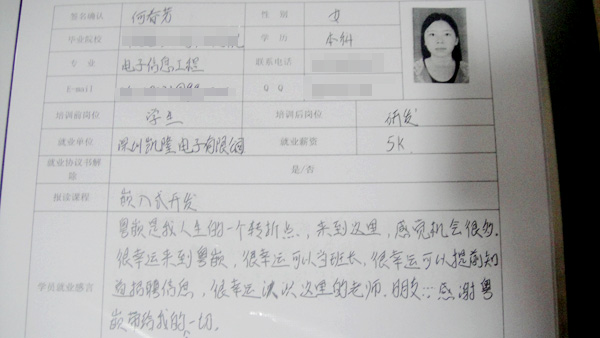 签名确认 何春芳 性 别 女
毕业院校 学 历 本科
专 业 电子信息工程 联系电话
E-mail Q Q
培训前岗位 学生 培训后岗位 研发
就业单位 深圳凯隆电子有限公司 就业薪资 5K
就业协议书解除 是/否
报读课程 嵌入式开发
学员就业感言
粤嵌是我人生的一个转折点,来到这里,感觉机会很多.
很幸运来到粤嵌,很幸运可以当班长,很幸运可以提前知
道招聘信息,很幸运 认识这里的老师.朋友…感谢粤
嵌带给我的一切.